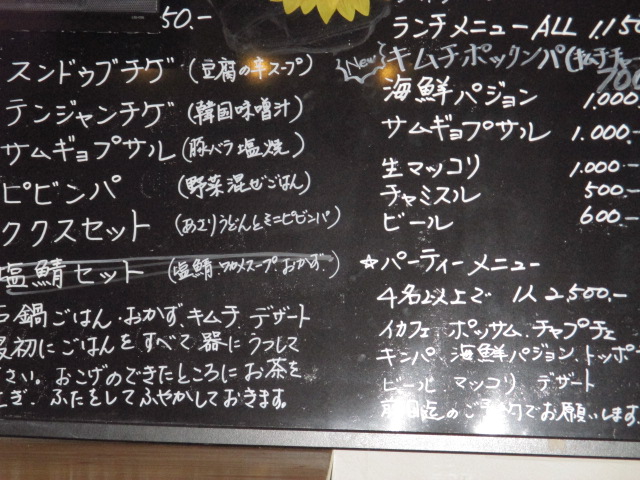 50.-
スンドゥブチゲ (豆腐の辛スープ)
テンジャンチゲ (韓国味噌汁)
サムギョプサル (豚バラ塩焼)
ピビンパ (野菜混ぜごはん)
ククスセット (あさりうどんとミニピビンパ)
塩鯖セット (塩鯖.ワカメスープ.おかず.)
鍋ごはん.おかず.キムチ デザート
最初にごはんをすべて器にうつして
さい。おこげのできたところにお茶を
ぎ.ふたをしてふやかしておきます。
ランチメニューALL 1,150
New キムチ.ポックンパ 700
海鮮パジョン 1.000-
サムギョプサル 1.000.-
生マッコリ 1,000-
チャミスル 500.-
ビール 600-
☆パーティーメニュー
4名以上で 1人 2,500.-
イカフェ ポッサム.チャプチェ
キンパ 海鮮パジョン.トッポ
ビール.マッコリ デザート
前日迄のご予約でお願いします.